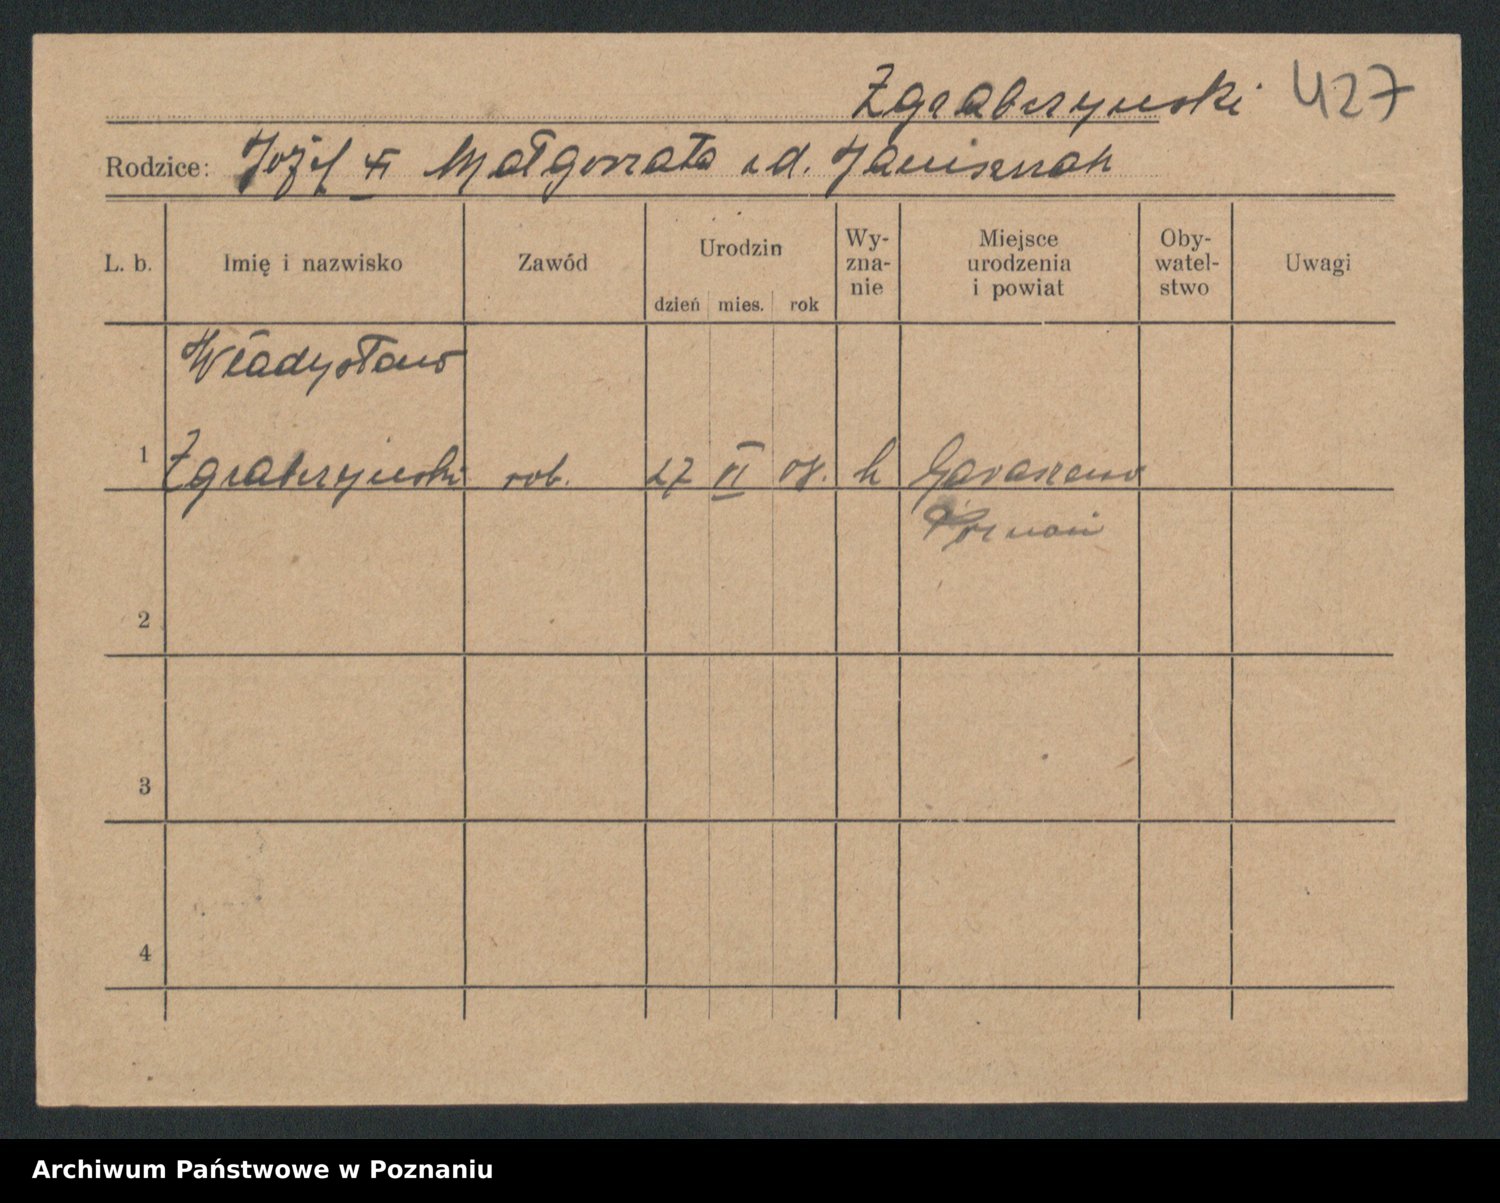 Zgrabczyński 427
Rodzice: Józef i Małgorzata z d. Janiszczak
L. b. Imię i nazwisko Zawód Urodzin dzień mies. rok Wy-zna-nie Miejsce urodzenia i powiat Oby-watel-stwo Uwagi
Władysław
1 Zgrabczyński rob. 27 VI k
Poznań
2
3
4
Archiwum Państwowe w Poznaniu